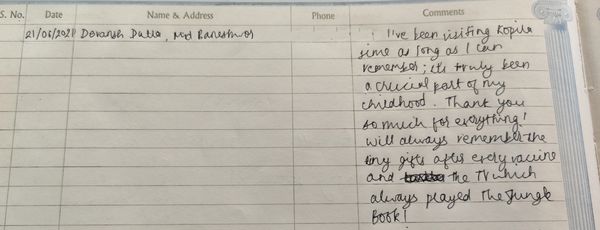 S. No. Date Name & Address Phone Comments
21/06/2021 Devansh Dutta, Mod Baneshwor I've been visiting Kopila
sime as long as I can
remember; it's truly been
a crucial part of my
childhood. Thank you
so much for everything!
will always remember the
tiny gifts after every vaccine
and the TV which
always played The Jungle
Book!